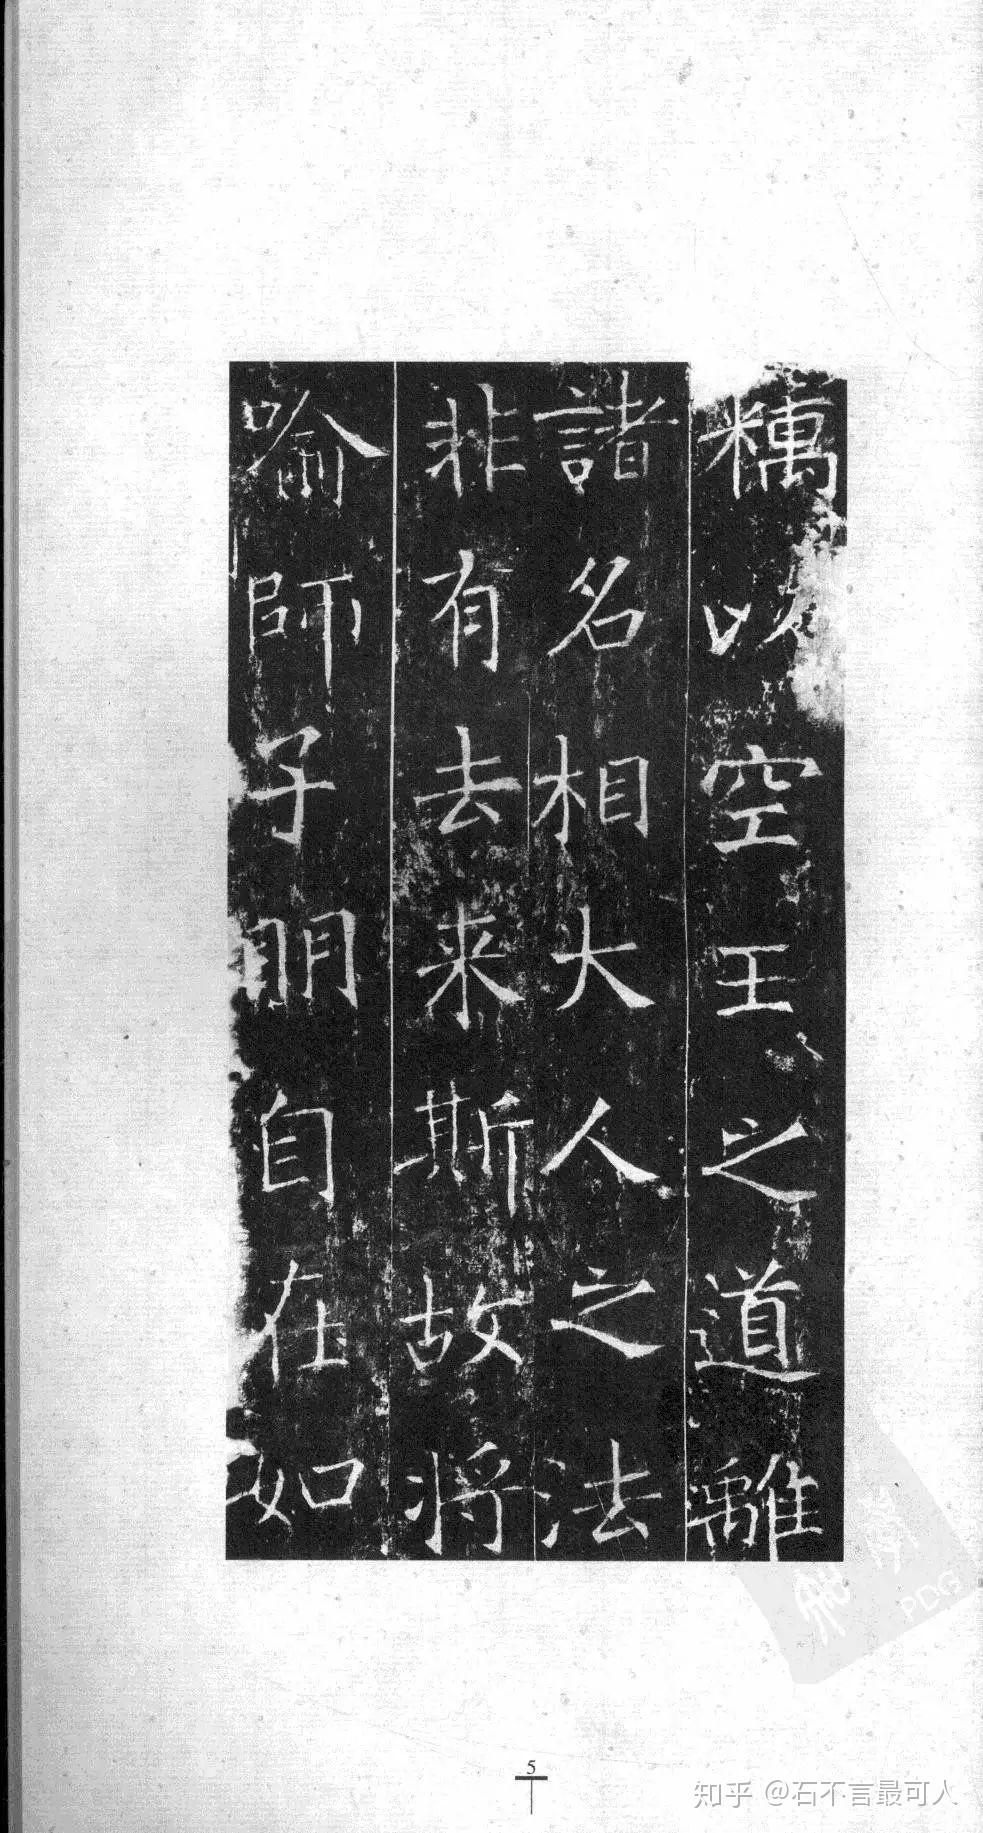 糲以空王之道離
諸名相大人之法
非有去来斯故将
喻師子明自在如
5
PDG
知乎 @石不言最可人